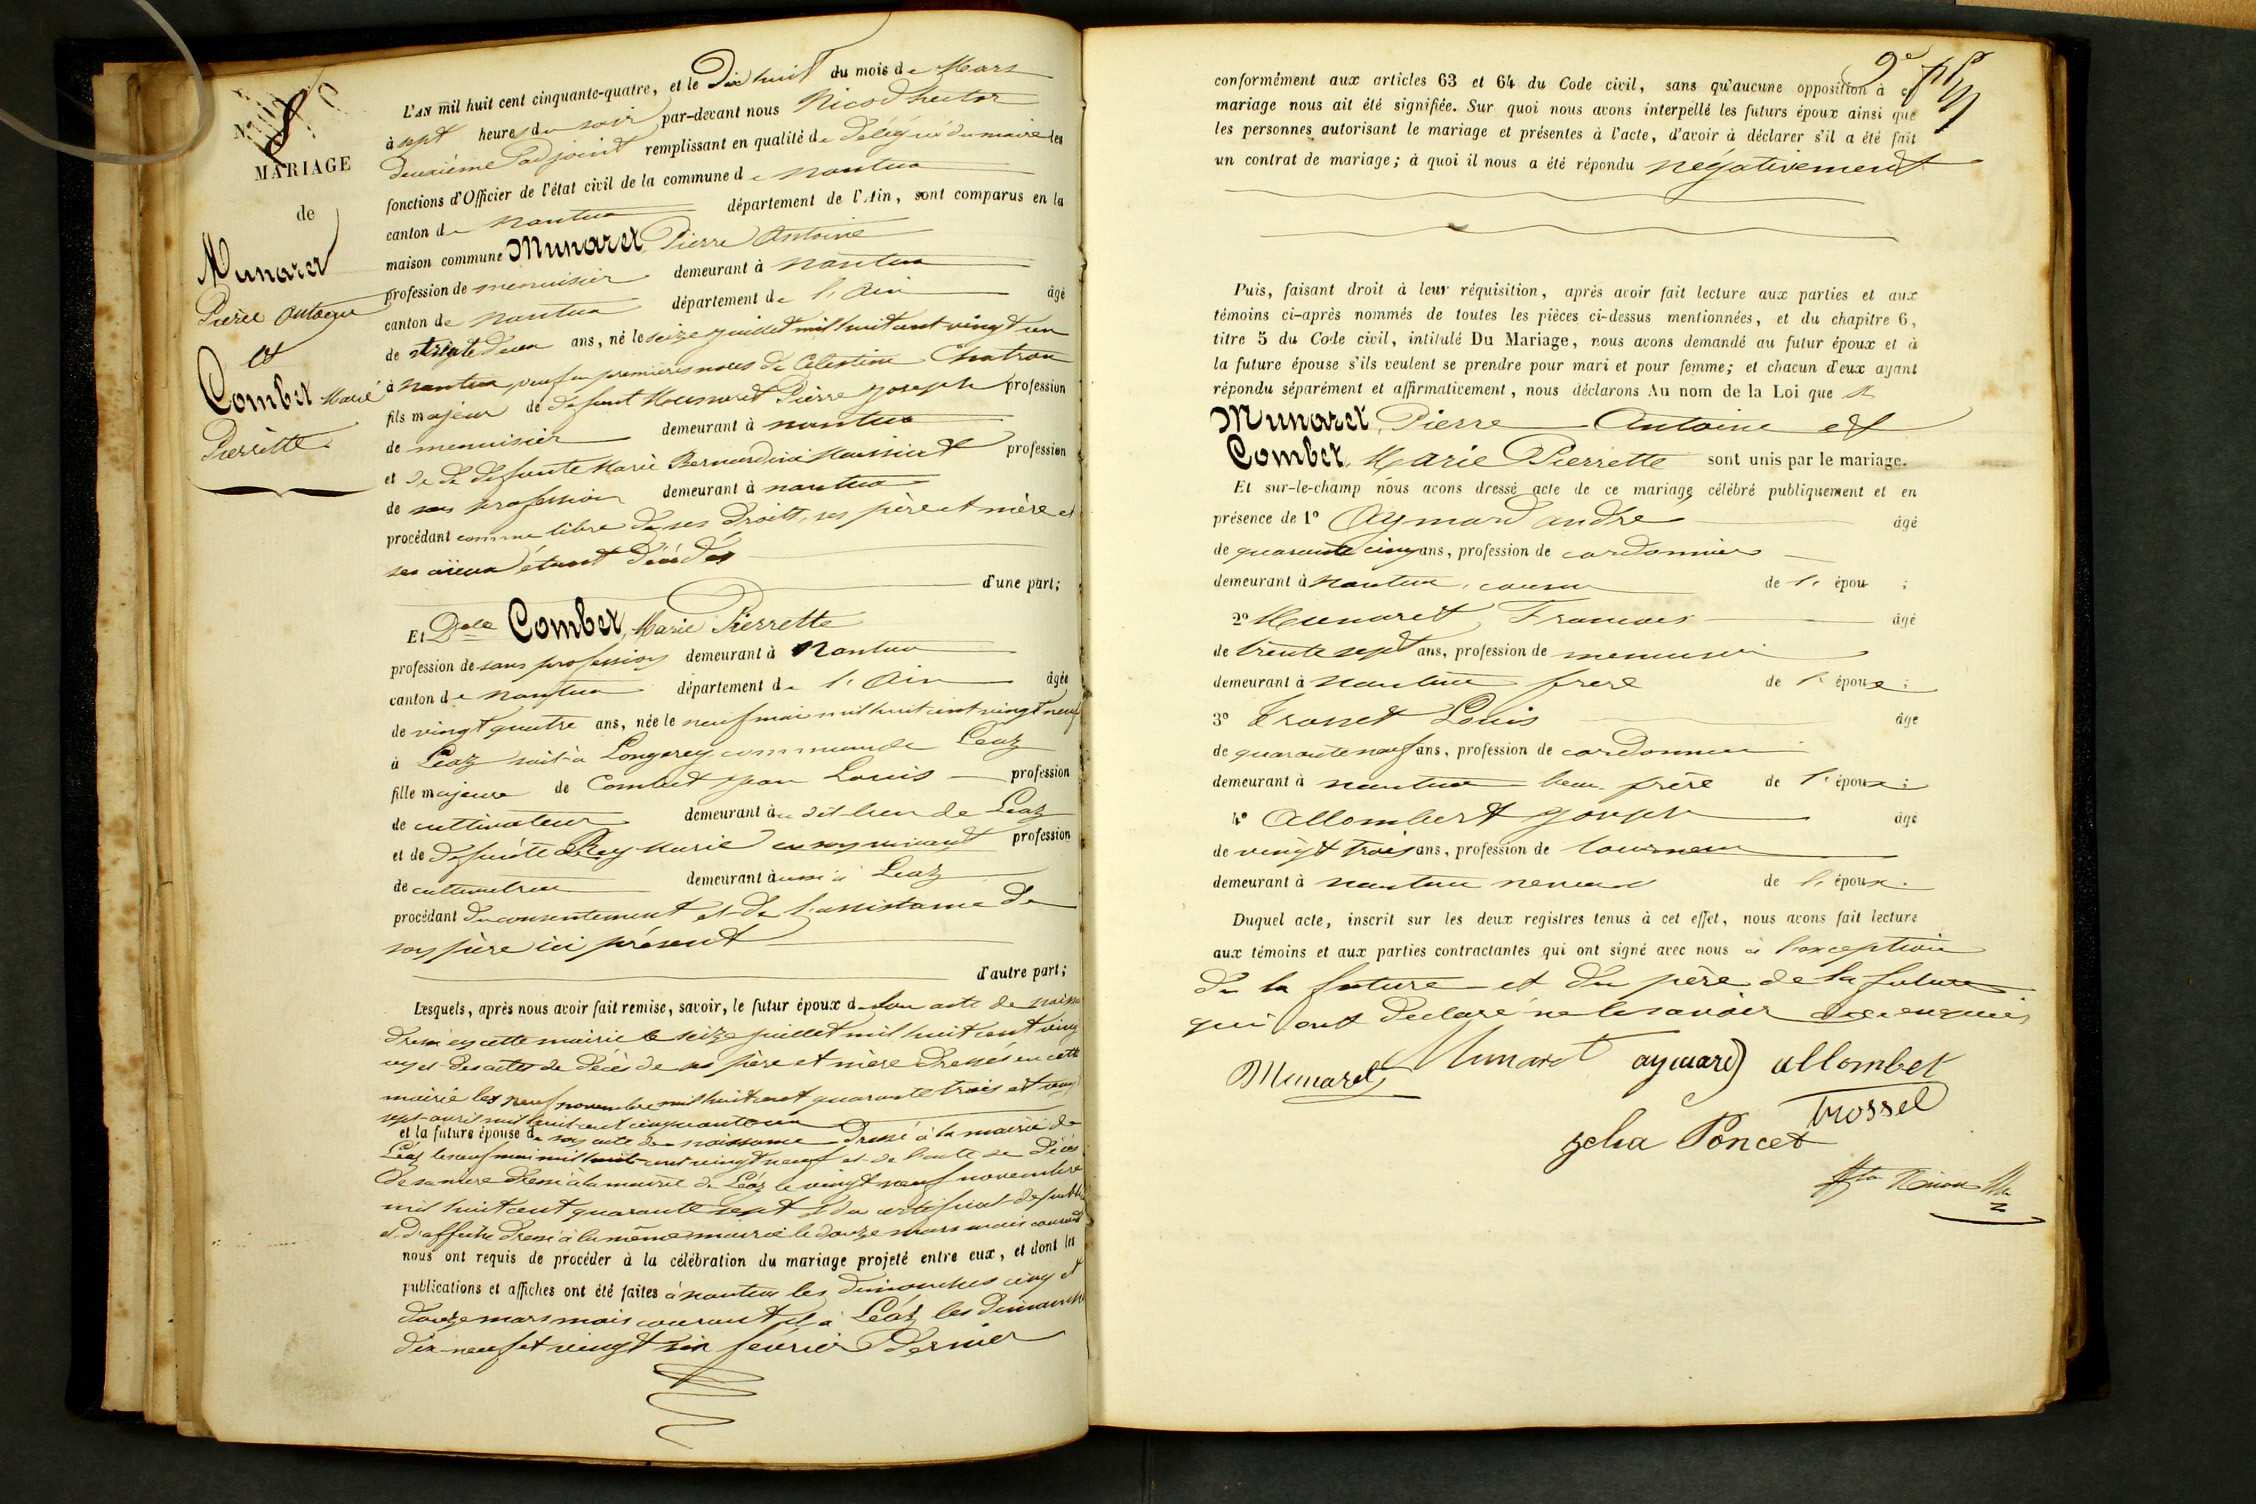 N° 8
MARIAGE
de
Munaret
Pierre Antoine
et
Combet Marie
Pierrette
L'AN mil huit cent cinquante-quatre, et le Dix huit du mois de Mars
à sept heures du soir par-devant nous Nicod hector
deuxième adjoint remplissant en qualité de délégué du maire les
fonctions d'Officier de l'état civil de la commune de nantua
canton de nantua département de l'Ain, sont comparus en la
maison commune Munaret Pierre Antoine
profession de menuisier demeurant à nantua
canton de nantua département de l'Ain âgé
de trente deux ans, né le seize juillet mil huit cent vingt un
à nantua, veuf en premières noces de Célestine Chatron
fils majeur de défunt Munaret Pierre joseph profession
de menuisier demeurant à nantua
et de défunte Marie Bernardine profession
de sans profession demeurant à nantua
procédant comme libre de ses droits, ses père et mère et
ses aïeux étant décédés
d'une part;
Et Dlle Combet, Marie Pierrette
profession de sans profession demeurant à Nantua
canton de nantua département de l'Ain âgée
de vingt quatre ans, née le neuf mai mil huit cent vingt neuf
à Léaz soit à Longerey commune de Léaz
fille majeure de Combet jean Louis profession
de cultivateur demeurant au dit lieu de Léaz
et de défunte Rey Marie en son vivant profession
de cultivatrice demeurant aussi à Léaz
procédant du consentement et de l'assistance de
son père ici présent
d'autre part;
Lesquels, après nous avoir fait remise, savoir, le futur époux de son acte de naiss
dressé en cette mairie le seize juillet mil huit cent vingt
un et des actes de décès de ses père et mère dressés en cette
mairie les neuf novembre mil huit cent quarante trois et vingt
sept avril mil huit cent cinquante un
et la future épouse de son acte de naissance dressé à la mairie de
Léaz le neuf mai mil huit cent vingt neuf et de l'acte de décès
de sa mère dressé à la mairie de Léaz le vingt neuf novembre
mil huit cent quarante sept et du certificat de publi
et d'affiche dressé à la même mairie le douze mars mois courant
nous ont requis de procéder à la célébration du mariage projeté entre eux, et dont les
publications et affiches ont été faites à nantua les dimanches cinq et
douze mars mois courant et à Léaz les dimanches
dix-neuf et vingt six février dernier
conformément aux articles 63 et 64 du Code civil, sans qu'aucune opposition à ce
mariage nous ait été signifiée. Sur quoi nous avons interpellé les futurs époux ainsi que
les personnes autorisant le mariage et présentes à l'acte, d'avoir à déclarer s'il a été fait
un contrat de mariage; à quoi il nous a été répondu négativement
Puis, faisant droit à leur réquisition, après avoir fait lecture aux parties et aux
témoins ci-après nommés de toutes les pièces ci-dessus mentionnées, et du chapitre 6,
titre 5 du Code civil, intitulé Du Mariage, nous avons demandé au futur époux et à
la future épouse s'ils veulent se prendre pour mari et pour femme; et chacun d'eux ayant
répondu séparément et affirmativement, nous déclarons Au nom de la Loi que
Munaret, Pierre Antoine et
Combet, Marie Pierrette sont unis par le mariage.
Et sur-le-champ nous avons dressé acte de ce mariage célébré publiquement et en
présence de 1° Aymard andré âgé
de quarante cinq ans, profession de cordonnier
demeurant à nantua, cousin de l' épou ;
2° Munaret, François âgé
de trente sept ans, profession de menuisier
demeurant à nantua frère de l' époux ;
3° Trosset Louis âgé
de quarante neuf ans, profession de cordonnier
demeurant à nantua beau-frère de l' époux ;
4° Allombert joseph âgé
de vingt trois ans, profession de tourneur
demeurant à nantua neveu de l' époux.
Duquel acte, inscrit sur les deux registres tenus à cet effet, nous avons fait lecture
aux témoins et aux parties contractantes qui ont signé avec nous à l'exception
de la future et du père de la future
qui ont déclaré ne le savoir de ce enquis
Munaret Munaret aymard allombet
Trossel
zelia Poncet